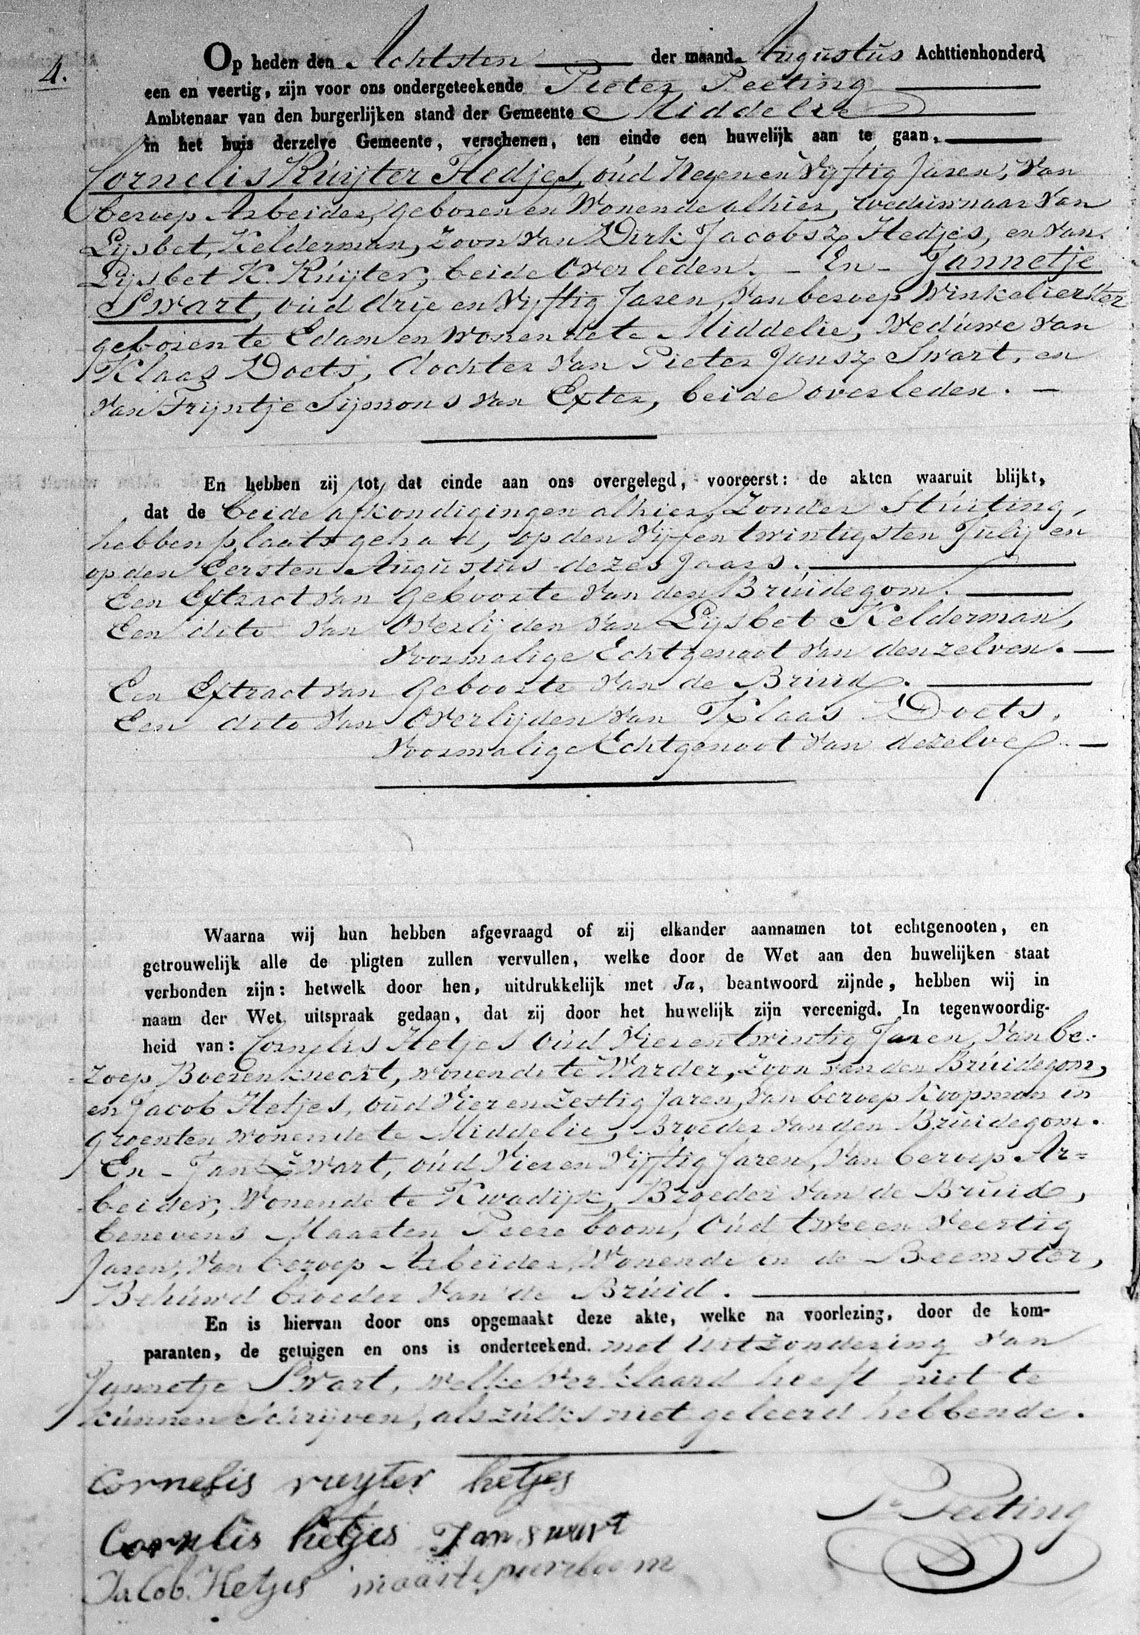 4.
Op heden den Achtsten der maand Augustus Achttienhonderd
een en veertig, zijn voor ons ondergeteekende Pieter Peeting
Ambtenaar van den burgerlijken stand der Gemeente Middelie
in het huis derzelve Gemeente, verschenen, ten einde een huwelijk aan te gaan,
Cornelis Ruijter Hedjes, oud Negen en Vijftig Jaren, van
beroep Arbeider, geboren en Wonende alhier, weduwnaar van
Lijsbet, Kelderman, zoon van Dirk Jacobsz Hedjes, en van
Lijsbet K. Ruijter, beide Overleden. - En - Jannetje
Swart, oud drie en Vijftig Jaren, van beroep Winkelierster
geboren te Edam en wonende te Middelie, Weduwe van
Klaas Doets, dochter van Pieter Jansz Swart, en
van Trijntje Sijmons van Exter, beide overleden. -
En hebben zij tot dat einde aan ons overgelegd, vooreerst: de akten waaruit blijkt,
dat de beide afkondigingen alhier, Zonder Stuiting,
hebben plaats gehad, op den Vijf en twintigsten Julij en
op den Eersten Augustus dezes Jaars.
Een Extract van geboorte van den Bruidegom.
Een dito van Overlijden van Lijsbet Kelderman,
voormalige Echtgenoot van denzelven.
Een Extract van geboorte van de Bruid.
Een dito van Overlijden van Klaas Doets,
voormalige Echtgenoot van dezelve.
Waarna wij hun hebben afgevraagd of zij elkander aannamen tot echtgenooten, en
getrouwelijk alle de pligten zullen vervullen, welke door de Wet aan den huwelijken staat
verbonden zijn: hetwelk door hen, uitdrukkelijk met Ja, beantwoord zijnde, hebben wij in
naam der Wet uitspraak gedaan, dat zij door het huwelijk zijn vereenigd. In tegenwoordig-
heid van: Cornelis Hetjes oud Vier en twintig Jaren, van be-
roep Boerenknecht, wonende te Warder, Zoon van den Bruidegom,
en Jacob Hetjes, oud Vier en Zestig Jaren, van beroep Koopman in
groenten wonende te Middelie, Broeder van den Bruidegom.
En - Jan Zwart, oud Vier en Vijftig Jaren, van beroep Ar=
beider, Wonende te Kwadijk, Broeder van de Bruid,
benevens Maarten Peereboom, Oud twee en Veertig
Jaren, van beroep Arbeider, Wonende in de Beemster,
Behuwd broeder van de Bruid.
En is hiervan door ons opgemaakt deze akte, welke na voorlezing, door de kom-
paranten, de getuigen en ons is onderteekend. met uitzondering van
Jannetje Swart, welke verklaard heeft niet te
kunnen Schrijven, als zulks niet geleerd hebbende.
Cornelis ruyter hetjes
Cornelis hetjes Jan swart
P. Peeting
Jacob Hetjes maarte peereboom